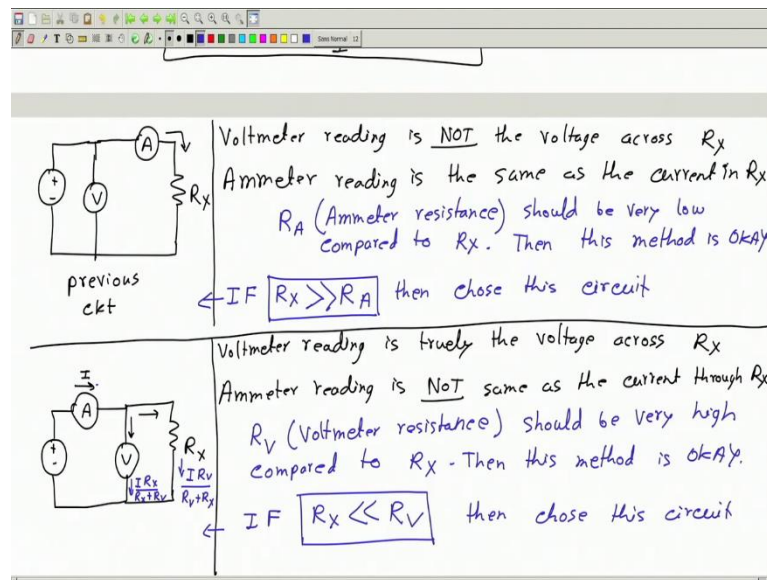 Sans Normal 12
I
Voltmeter reading is NOT the voltage across Rx
Ammeter reading is the same as the current in Rx
RA (Ammeter resistance) should be very low
compared to Rx. Then this method is OKAY
← IF Rx >> RA then chose this circuit
A
V
+
-
Rx
previous
ckt
Voltmeter reading is truely the voltage across Rx
Ammeter reading is NOT same as the current through Rx
RV (Voltmeter resistance) should be very high
compared to Rx - Then this method is OKAY.
← IF Rx << RV then chose this circuit
I
A
V
+
-
Rx
I Rx / Rx+Rv
I Rv / Rv+Rx